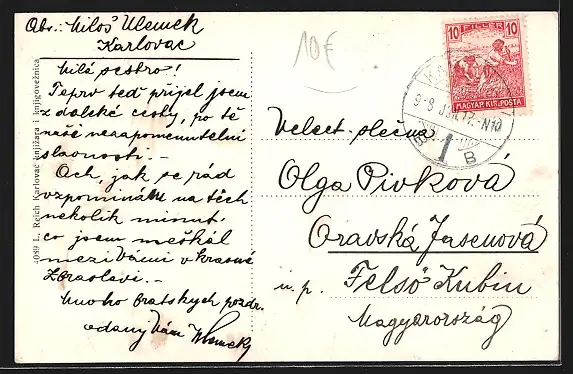 Obr.: Miloš Klemek
Karlovac
Milá sestro!
Teprv teď přijel jsem
z daleké cesty, po té
naší nezapomenutelní
slavnosti. —
Och, jak se rád
vzpomínám na těch
nekolik minut
co jsem meškal
mezi Vámi v krasné
Zbraslavi. —
Mnoho bratskych pozdr.
odany Vám Klemek
4089 L. Reich Karlovac knjižara i knjigovežnica
10€
10 FILLÉR 10
MAGYAR KIR. POSTA
1
B
Velect. slečna
Olga Pivková
Oravská Jasenová
u. p. Felsö Kubin
Magyarország